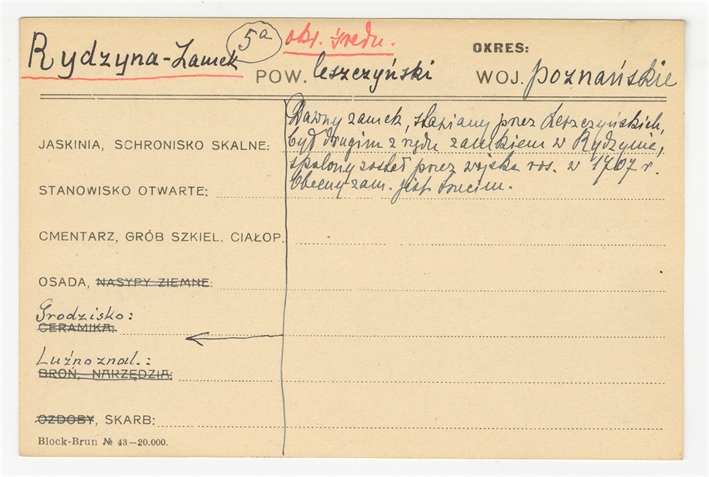 Rydzyna-Zamek 5a okr. średn. OKRES:
POW. leszczyński WOJ. poznańskie
Dawny zamek, stawiany przez Leszczyńskich,
JASKINIA, SCHRONISKO SKALNE: był drugim z rzędu zamkiem w Rydzynie,
spalony został przez wojska ros. w 1707 r.
STANOWISKO OTWARTE: Obecny zam. jest trzecim.
CMENTARZ, GRÓB SZKIEL. CIAŁOP.
OSADA, NASYPY ZIEMNE:
Grodzisko:
CERAMIKA:
Luźno znal.:
BROŃ, NARZĘDZIA:
OZDOBY, SKARB:
Block-Brun № 43—20.000.